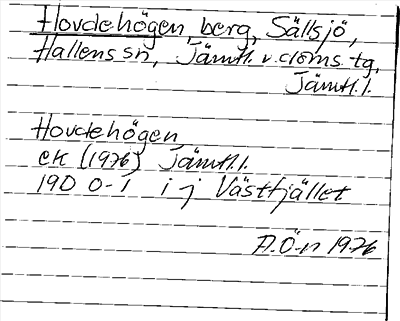 Hovdehögen, berg, Sällsjö,
Hallens sn, Jämtl. v. doms. tg,
Jämtl. l.
Hovdehögen
ek (1976) Jämtl. l.
19D 0-1 i j Västfjället
P.Ö-n 1976